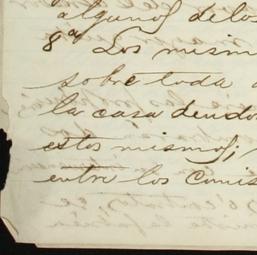 algunos de los
8ª Los mism
sobre toda
la casa deudo
estos mismos;
entre los comis